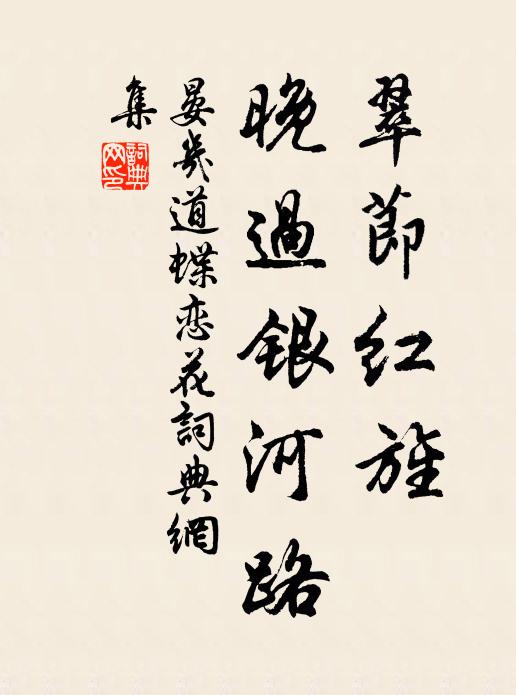 翠節红旌
晚過银河路
晏幾道蝶恋花詞典網
集
詞典
网印